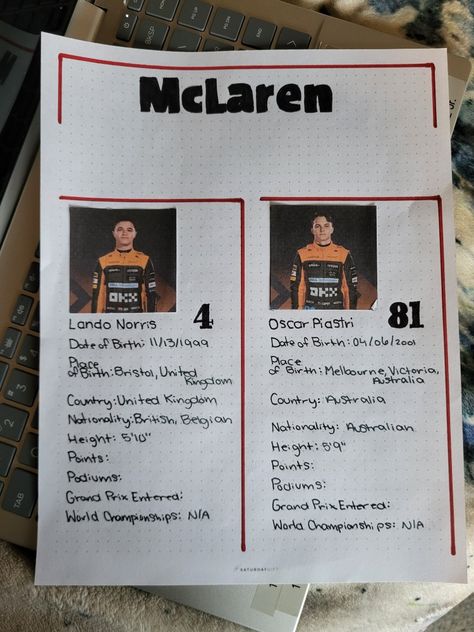 McLaren
OKX
Lando Norris
4
Date of Birth: 11/13/1999
Place
of Birth: Bristol, United
Kingdom
Country: United Kingdom
Nationality: British, Belgian
Height: 5'10"
Points:
Podiums:
Grand Prix Entered:
World Championships: N/A
OKX
Oscar Piastri
81
Date of Birth: 04/06/2001
Place
of Birth: Melbourne, Victoria,
Australia
Country: Australia
Nationality: Australian
Height: 5'9"
Points:
Podiums:
Grand Prix Entered:
World Championships: N/A
TAB